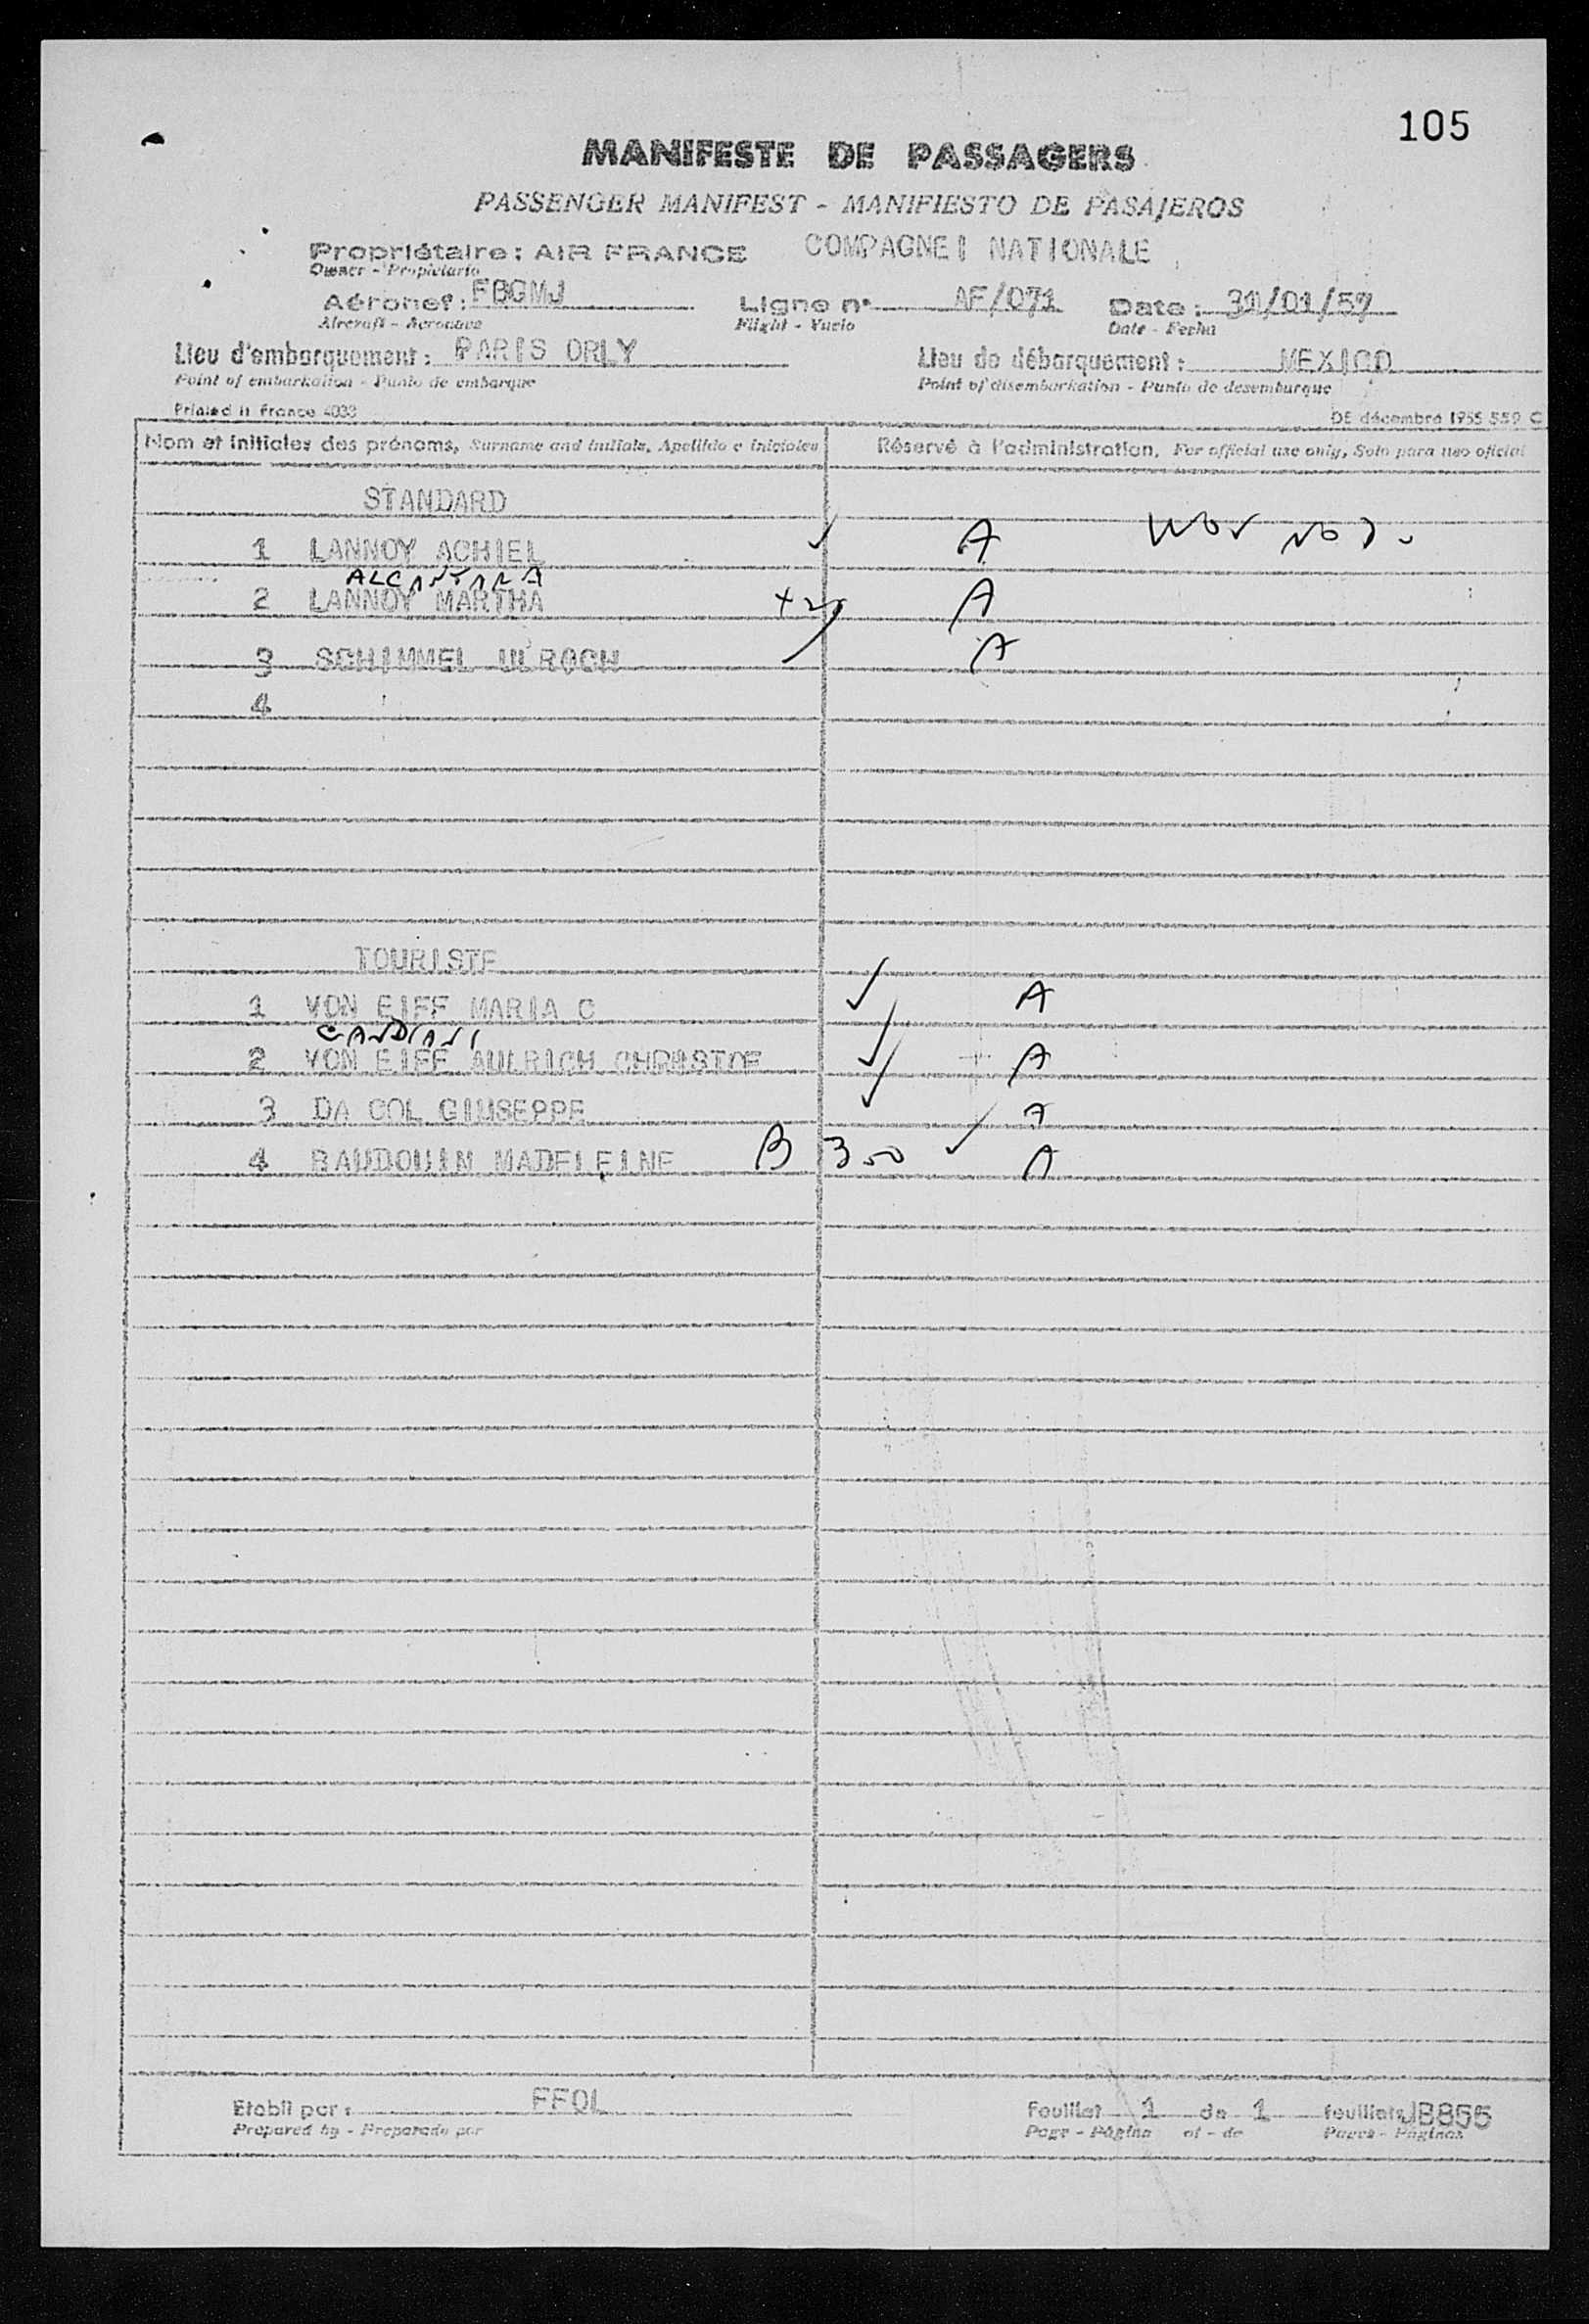 105
MANIFESTE DE PASSAGERS
PASSENGER MANIFEST - MANIFIESTO DE PASAJEROS
Propriétaire: AIR FRANCE COMPAGNEI NATIONALE
Owner - Propietario
Aéronef: FBGMJ Ligne n° AF/071 Date: 31/01/57
Aircraft - Aeronave Flight - Vuelo Date - Fecha
Lieu d'embarquement: PARIS ORLY Lieu de débarquement: MEXICO
Point of embarkation - Punto de embarque Point of disembarkation - Punto de desembarque
Printed in France 4033 DE décembre 1955 559 C
Nom et initiales des prénoms, Surname and initials, Apellido e iniciales Réservé à l'administration, For official use only, Solo para uso oficial
STANDARD
1 LANNOY ACHIEL A
ALCANTARA
2 LANNOY MARTHA A
3 SCHIMMEL ULROCH A
4
TOURISTE
1 VON EIFF MARIA C A
CANDIANI
2 VON EIFF AULRICH CHRISTOF A
3 DA COL GIUSEPPE A
4 BAUDOUIN MADELEINE B 300 A
Etabli par: FFOL Feuillet 1 de 1 feuillets JB855
Prepared by - Preparado por Page - Página of - de Pages - Páginas